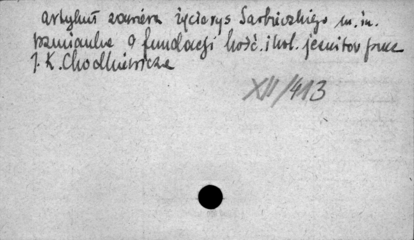 artykuł zawiera życiorys Sarbiewskiego m. in.
wzmianka o fundacji kość. i kol. jezuitów przez
J. K. Chodkiewicza
XII/413